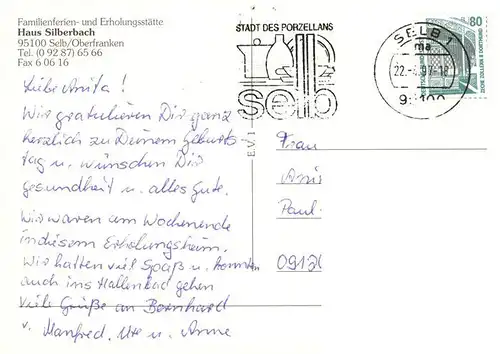 Familienferien- und Erholungsstätte
Haus Silberbach
95100 Selb/Oberfranken
Tel. (0 92 87) 65 66
Fax 6 06 16
Liebe Anita!
Wir gratulieren Dir ganz
herzlich zu Deinem Geburts
tag u. wünschen Dir
gesundheit u. alles Gute.
Wir waren am Wochenende
in diesem Erholungsheim.
Wir hatten viel Spaß u. konnten
auch ins Hallenbad gehen
Viele Grüße an Bernhard
v. Manfred, Ute u. Anne
STADT DES PORZELLANS
selb
SELB 1
ma
80
DEUTSCHE BUNDESPOST
ZECHE ZOLLERN II DORTMUND
E.V. 1
Frau
Paul